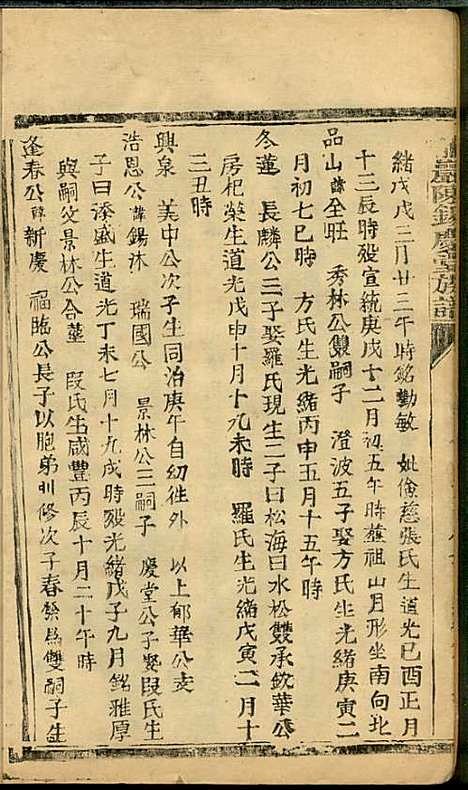 陳錫慶堂族譜
緒戊戌三月廿三午時銘勤敏 妣儉慈張氏生道光己酉正月
十三辰時殁宣統庚戌十二月初五午時葬祖山月形坐南向北
品山諱全旺 秀林公雙嗣子 澄波五子娶方氏生光緒庚寅二
月初七巳時 方氏生光緒丙申五月十五午時
冬蓮 長麟公三子娶羅氏現生二子曰松海曰水松雙承欽華公
房杞榮生道光戊申十月十九未時 羅氏生光緒戊寅二月十
三丑時
興泉 美中公次子生同治庚午自幼徃外 以上郁華公支
浩恩公諱錫沐 瑞國公 景林公三嗣子 慶堂公子娶段氏生
子曰添盛生道光丁未七月十九戌時殁光緒戊子九月銘雅厚
與嗣父景林公合墓 段氏生咸豐丙辰十月二十午時
逢春公諱新慶 福臨公長子以胞弟訓修次子春餘為雙嗣子生